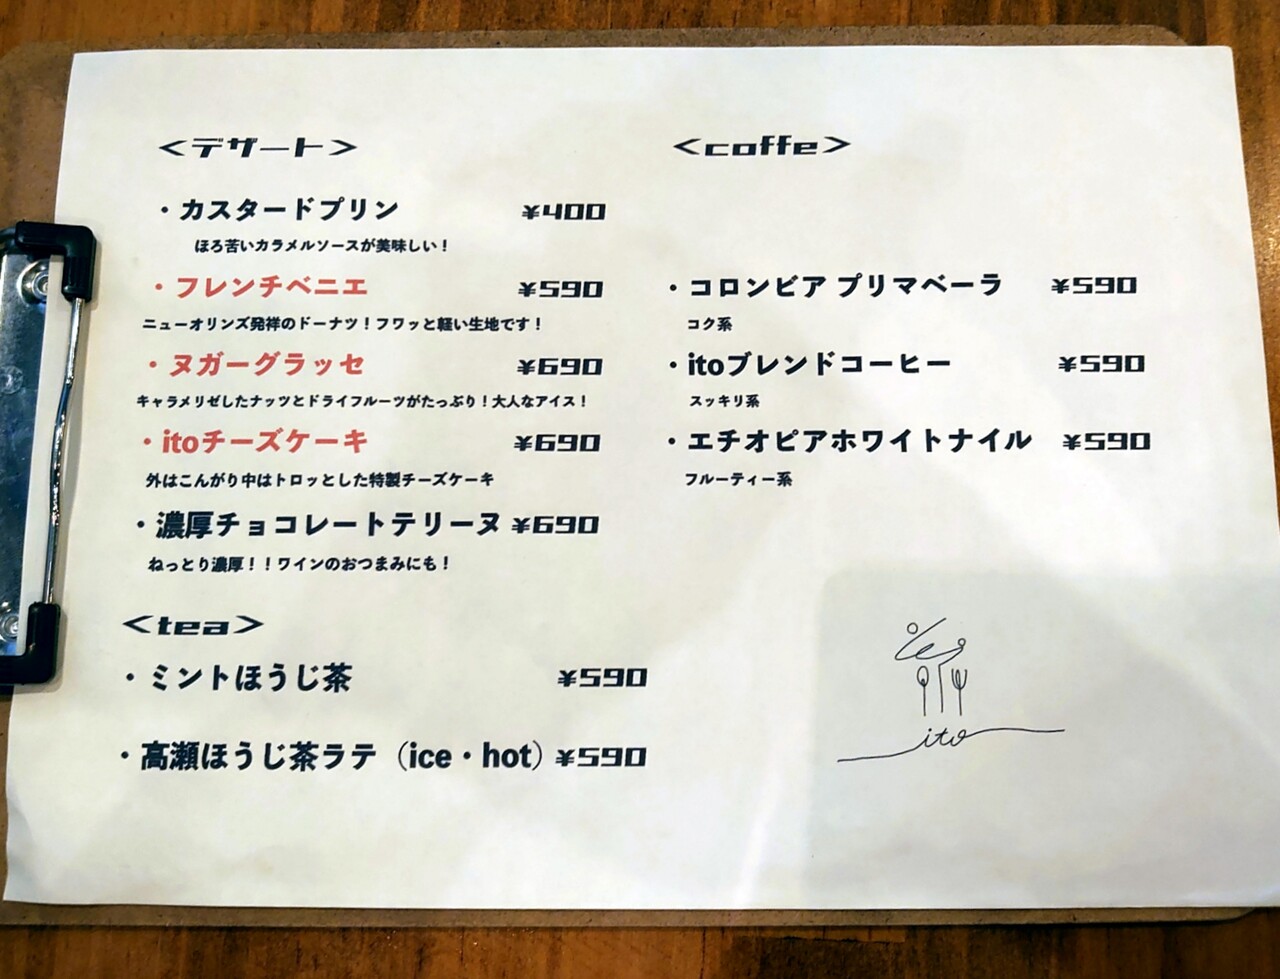 <デザート>
・カスタードプリン ¥400
ほろ苦いカラメルソースが美味しい！
・フレンチベニエ ¥590
ニューオリンズ発祥のドーナツ！フワッと軽い生地です！
・ヌガーグラッセ ¥690
キャラメリゼしたナッツとドライフルーツがたっぷり！大人なアイス！
・itoチーズケーキ ¥690
外はこんがり中はトロッとした特製チーズケーキ
・濃厚チョコレートテリーヌ ¥690
ねっとり濃厚！！ワインのおつまみにも！
<tea>
・ミントほうじ茶 ¥590
・高瀬ほうじ茶ラテ（ice・hot）¥590
<coffe>
・コロンビア プリマベーラ ¥590
コク系
・itoブレンドコーヒー ¥590
スッキリ系
・エチオピアホワイトナイル ¥590
フルーティー系
ito